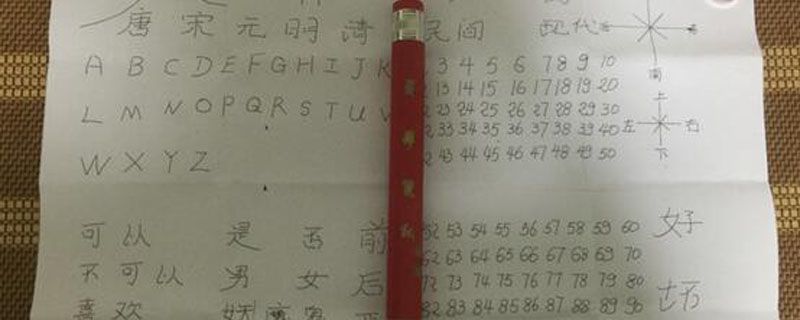 唐 宋 元 明 清 民间 现代
A B C D E F G H I J K 3 4 5 6 7 8 9 10
南
2 13 14 15 16 17 18 19 20
L M N O P Q R S T U V 2 23 24 25 26 27 28 29 30
上
2 33 34 35 36 37 38 39 40 左 右
W X Y Z 2 43 44 45 46 47 48 49 50 下
可以 是 否 前 52 53 54 55 56 57 58 59 60 好
62 63 64 65 66 67 68 69 70
不可以 男 女 后 72 73 74 75 76 77 78 79 80
喜欢 82 83 84 85 86 87 88 89 90 坏